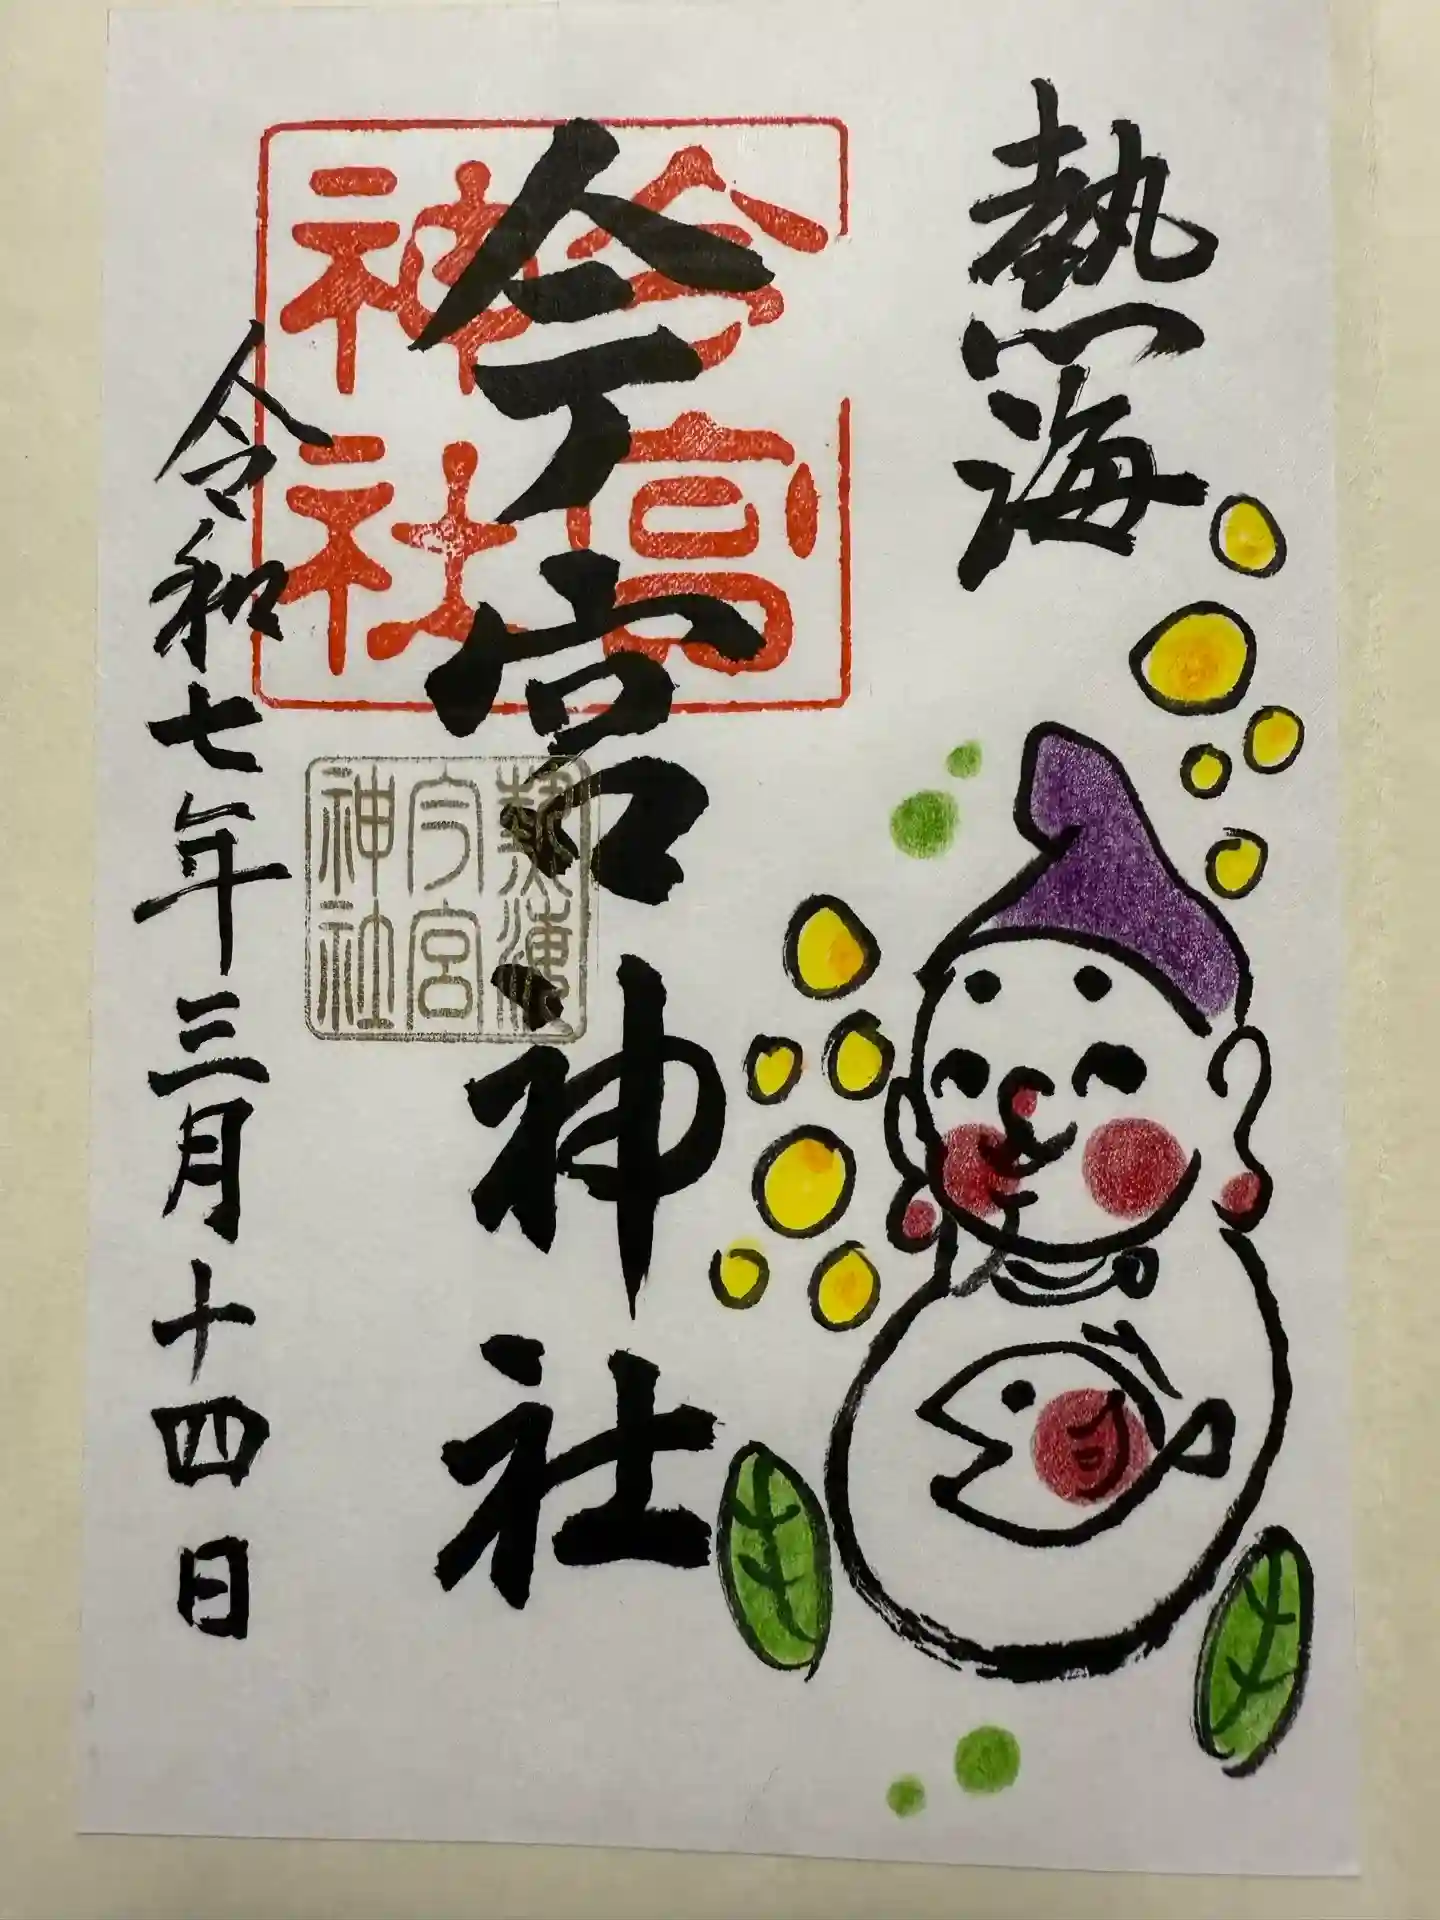 熱海
今宮神社
今宮
神社
熱海
今宮
神社
令和七年三月十四日